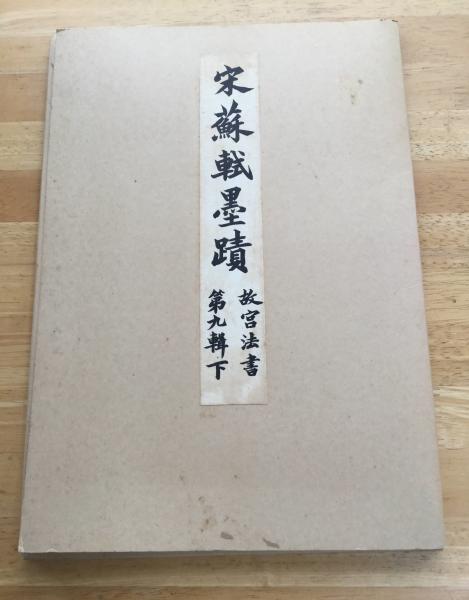 宋蘇軾墨蹟
故宮法書
第九輯下